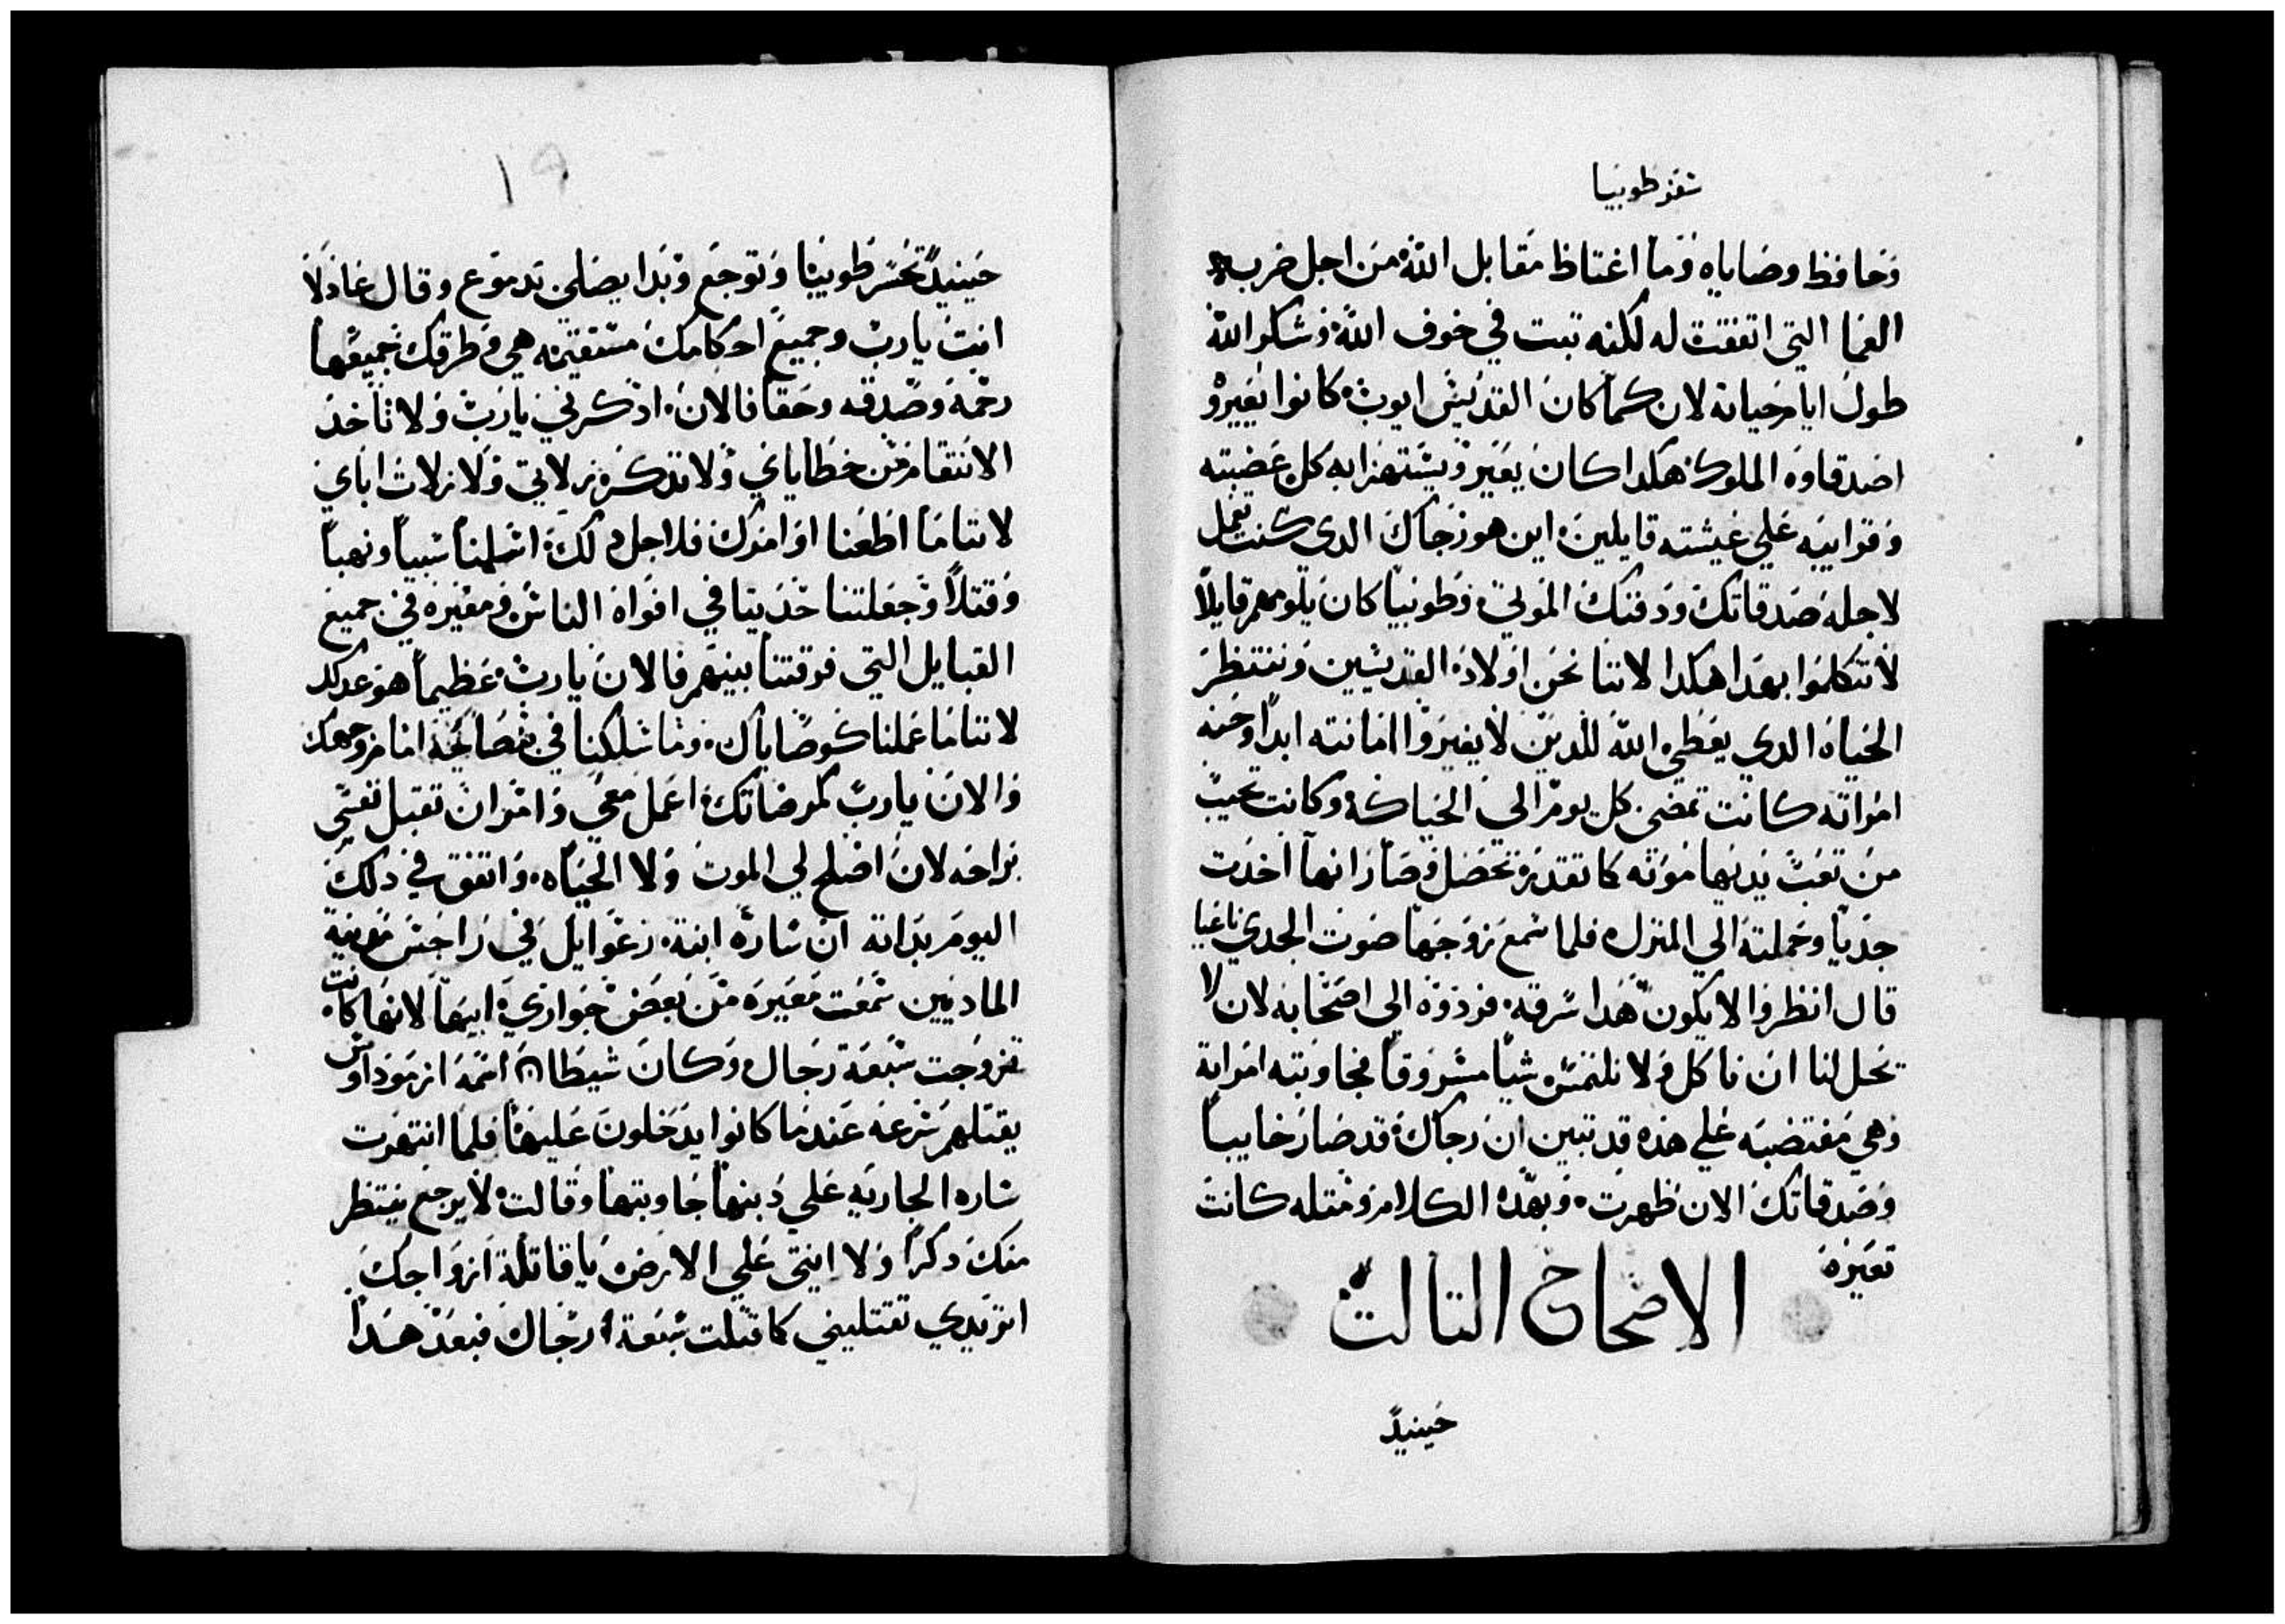 سفر طوبيا
وحافظ وصاياه وما اغتاظ مقابل الله من اجل ضربة
العما التي اتفقت له لكنه تبت في خوف الله وشكر الله
طول ايام حياته لان كما كان القديس ايوب كانوا يعيرو
اصدقاوه الملوك هكدا كان يعير ويستهزا به كل عصبته
وقرايبه علي عيشته قايلين اين هو رجاك الدي كنت تعمل
لاجله صدقاتك ودفنك الموتي وطوبيا كان يلومهم قايلاً
لا تتكلموا بهدا هكدا لاننا نحن اولاد القديسين وننتظر
الحياه الدي يعطي الله للدين لا يغيروا امانته ابداً وحنه
امراته كانت تمضي كل يوم الي الحياكة وكانت تجيب
من تعب يديها موته كما تقدر تحصل وصار انها اخدت
جدياً وحملته الي المنزل فلما سمع زوجها صوت الجدي ناغيا
قال انظروا لا يكون هدا سرقه فردوه الي اصحابه لان لا
يحل لنا ان ناكل ولا نلمس شياً مسروقاً فجاوبته امراته
وهي مغتضبه علي هده قد تبين ان رجاك قد صار خايباً
وصدقاتك الان ظهرت وبهده الكلام ومتله كانت
تعيره
الاصحاح التالت
حينيدً
١٩
حينيدً تحسر طوبيا وتوجع وبدا يصلي بدموع وقال عادلاً
انت يا رب وجميع احكامك مستقيمه هي وطرقك جميعها
رحمة وصدقه وحقاً فالان ادكرني يا رب ولا تاخد
الانتقام من خطاياي ولا تدكر زلاتي ولا زلات اباي
لاننا ما اطعنا اوامرك فلاجل دلك اسلمنا سبياً ونهباً
وقتلاً وجعلتنا حديتا في افواه الناس ومعيره في جميع
القبايل التي فرقتنا بينهم فالان يا رب عظيماً هو عدلك
لاننا ما عملنا كوصاياك وما سلكنا في مصالحة امام وجهك
والان يا رب كمرضاتك اعمل معي وامر ان تقبل نفسي
براحه لان اصلح لي الموت ولا الحياه واتفق في دلك
اليوم بداته ان ساره ابنة رعوايل في راجس مدينة
الماديين سمعت معيره من بعض جواري ابيها لانها كانت
تزوجت سبعة رجال وكان شيطان اسمه ازموداوس
يقتلهم سرعه عندما كانوا يدخلون عليها فلما انتهرت
ساره الجاريه علي دبنها جاوبتها وقالت لا يرجع ينتظر
منك دكراً ولا انتي علي الارض يا قاتلة ازواجك
اتريدي تقتليني كما قتلت سبعة رجال فبعد هدا